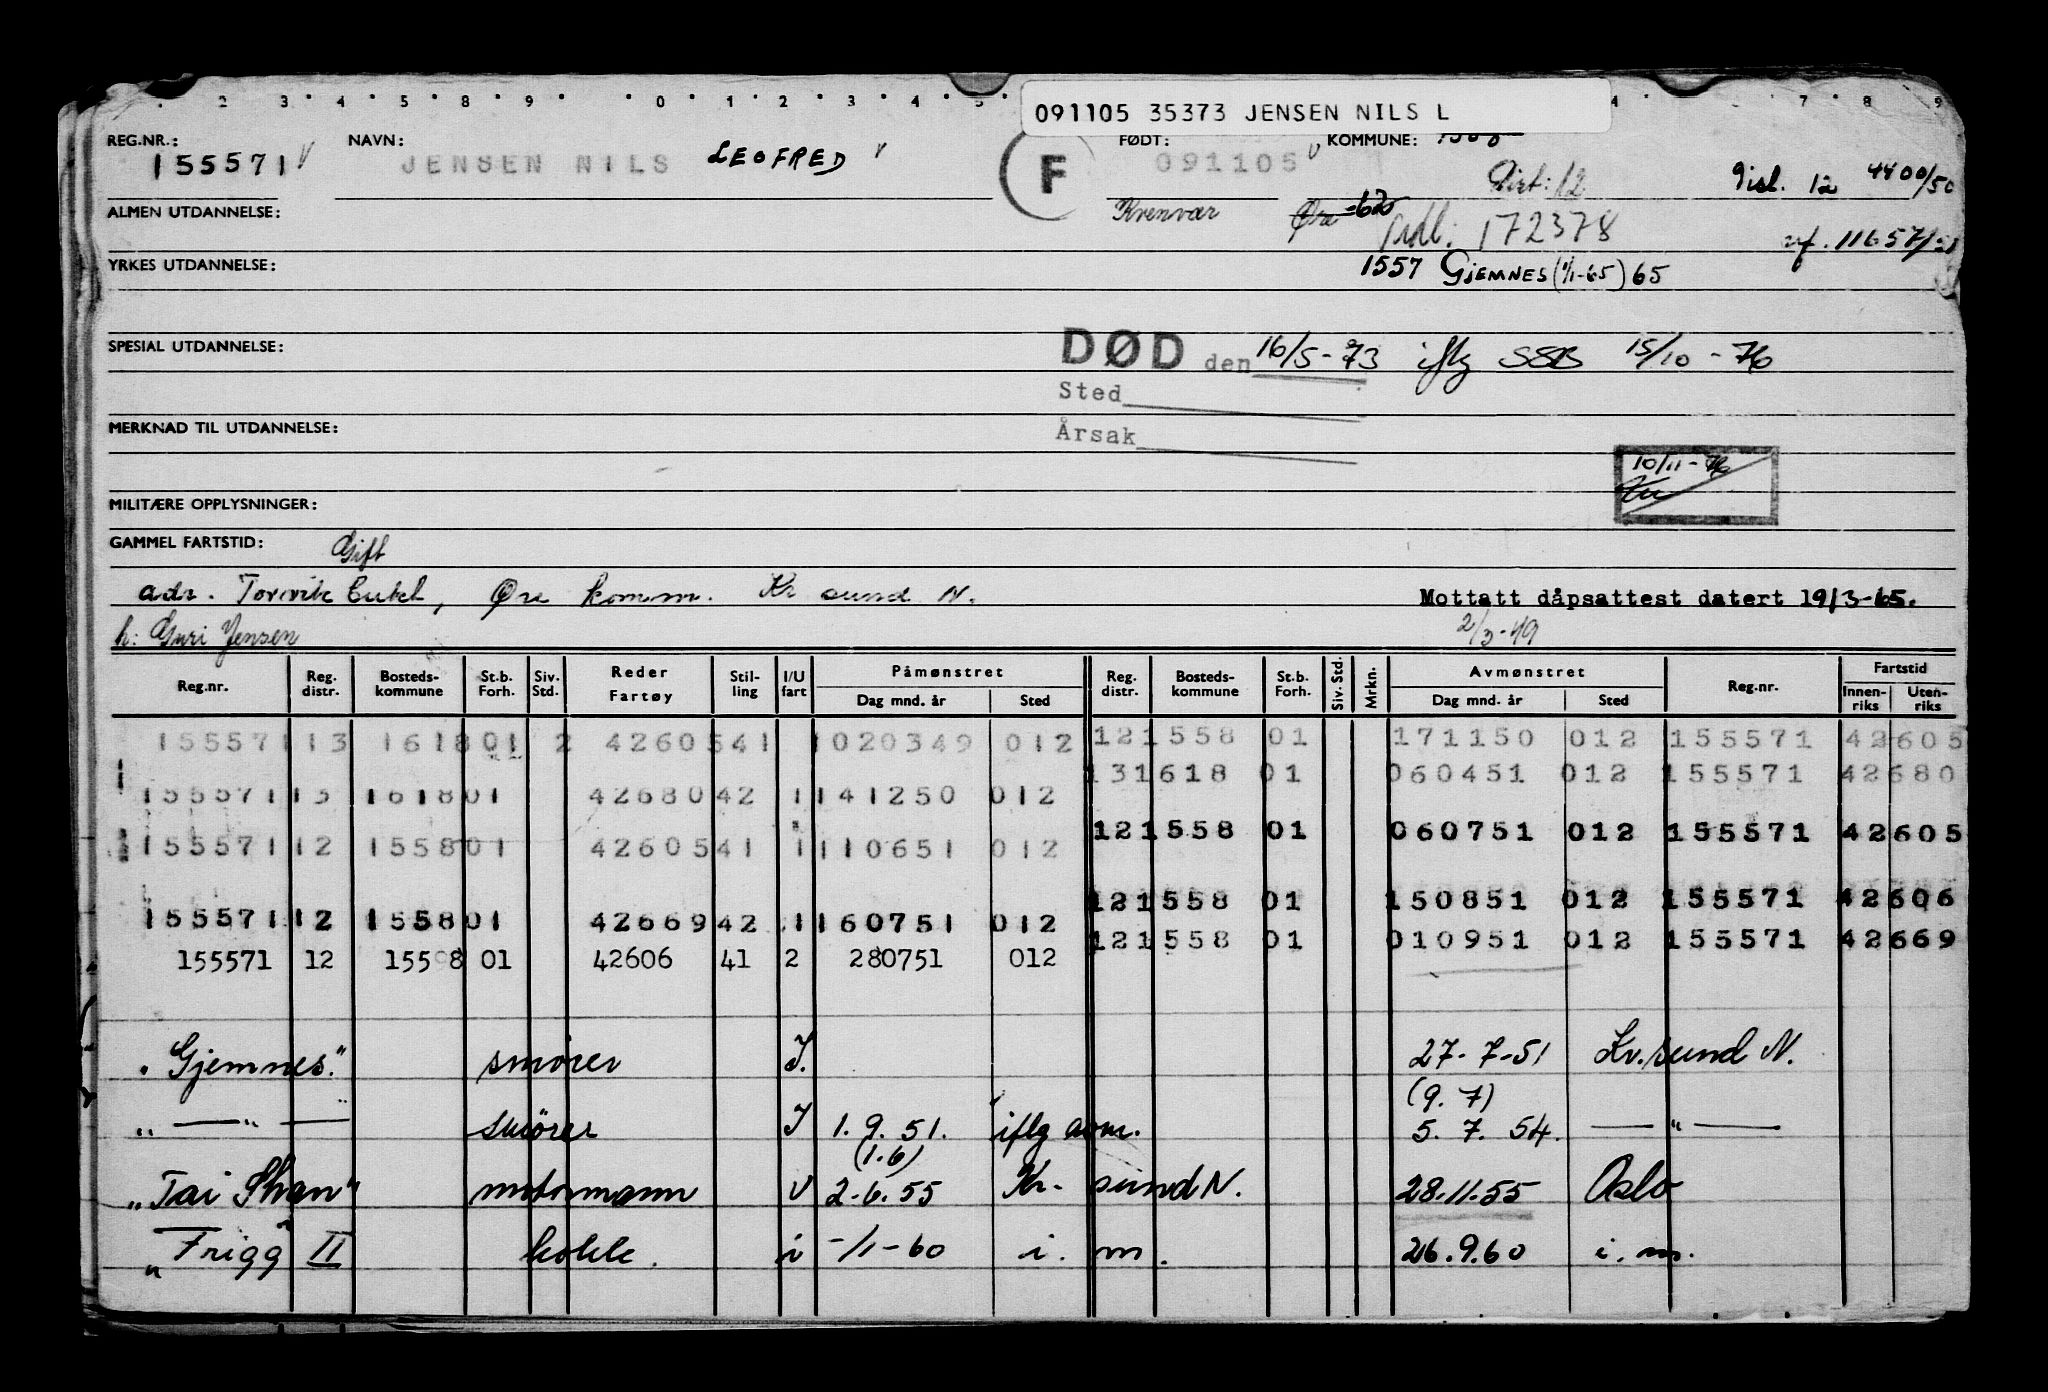 091105 35373 JENSEN NILS L
REG.NR.: NAVN: FØDT: KOMMUNE:
155571 V JENSEN NILS LEOFRED V F 091105 V
Dist: 12 Disl. 12 4400/50
ALMEN UTDANNELSE: Kvenvær Øre -62 Rdl: 172378
vf. 11657/51
YRKES UTDANNELSE: 1557 GJEMNES (1/1-65) 65
SPESIAL UTDANNELSE: DØD den 16/5-73 iflg SSB 15/10-76
Sted
MERKNAD TIL UTDANNELSE: Årsak
10/11-76
MILITÆRE OPPLYSNINGER:
GAMMEL FARTSTID: Gift
adr. Torvik, Øre komm. Kr sund N. Mottatt dåpsattest datert 19/3-65.
h: Guri Jensen 2/3-49
Reg.nr. Reg. distr. Bosteds-kommune St.b. Forh. Siv. Std. Reder Fartøy Stil-ling I/U fart Påmønstret Dag mnd. år Sted Reg. distr. Bosteds-kommune St.b. Forh. Siv. Std. Mrkn. Avmønstret Dag mnd. år Sted Reg.nr. Fartstid Innen-riks Uten-riks
155571 13 1618 01 2 42605 41 1 020349 012 12 1558 01 171150 012 155571 42605
13 1618 01 060451 012 155571 42680
155571 13 1618 01 42680 42 1 141250 012
12 1558 01 060751 012 155571 42605
155571 12 1558 01 42605 41 1 110651 012
12 1558 01 150851 012 155571 42606
155571 12 1558 01 42669 42 1 160751 012
12 1558 01 010951 012 155571 42669
155571 12 1558 01 42606 41 2 280751 012
"Gjemnes" smører I. 27-7-51 Kr.sund N.
(9.7)
" — " — smører I 1.9.51. iflg avm. 5.7.54. — " —
(1.6)
"Tai Shan" motormann U 2-6.55 Kr-sund N. 28.11.55 Oslo
"Frigg" II kokk. i -/1-60 i.m. 26.9.60 i.m.